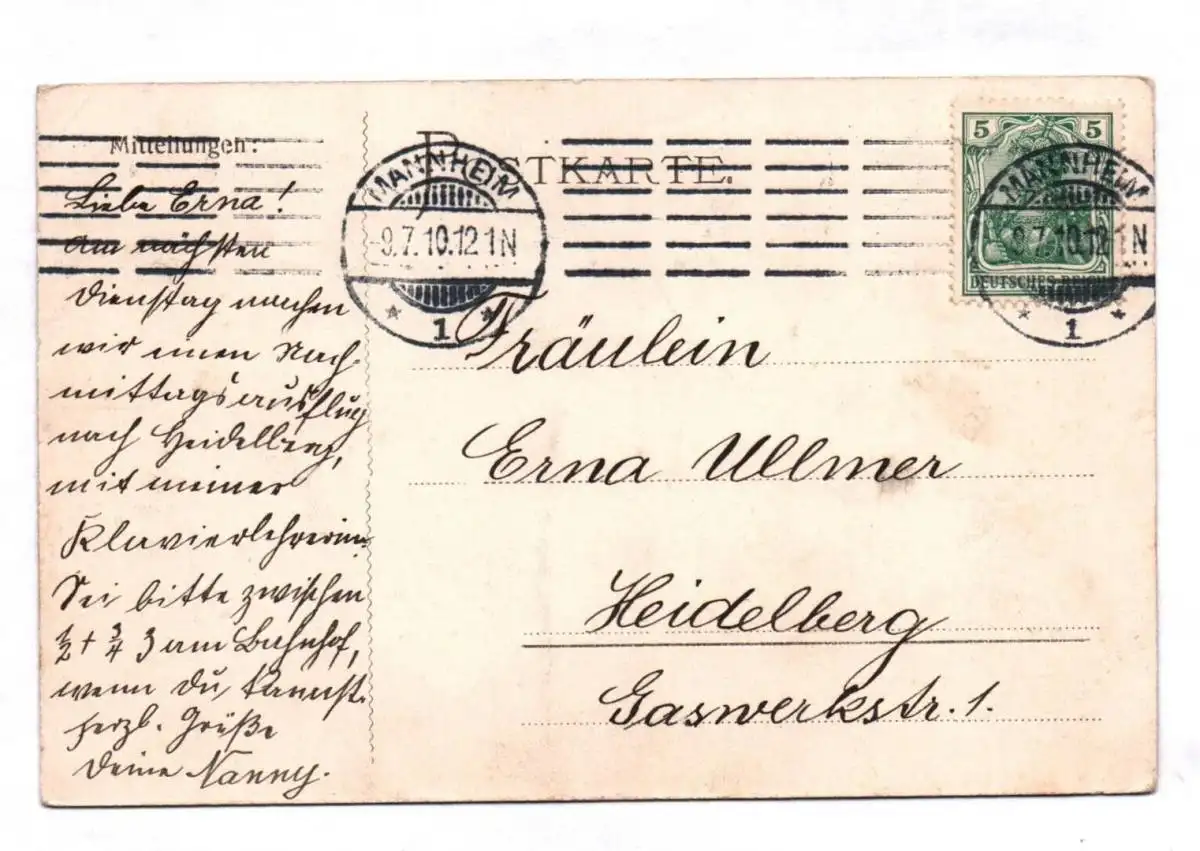 Mitteilungen:
Liebe Erna!
Am nächsten
Dienstag machen
wir einen Nach-
mittagsausflug
nach Heidelberg,
mit meiner
Klavierlehrerin.
Sei bitte zwischen
½ + ¾ 3 am Bahnhof,
wenn du kannst.
herzl. Grüße
Deine Nanny.
POSTKARTE.
MANNHEIM
9.7.10.12 1 N
* 1 *
5 5
DEUTSCHES REICH
MANNHEIM
9.7.10.12 1 N
* 1 *
Fräulein
Erna Ullmer
Heidelberg
Gaswerkstr. 1.